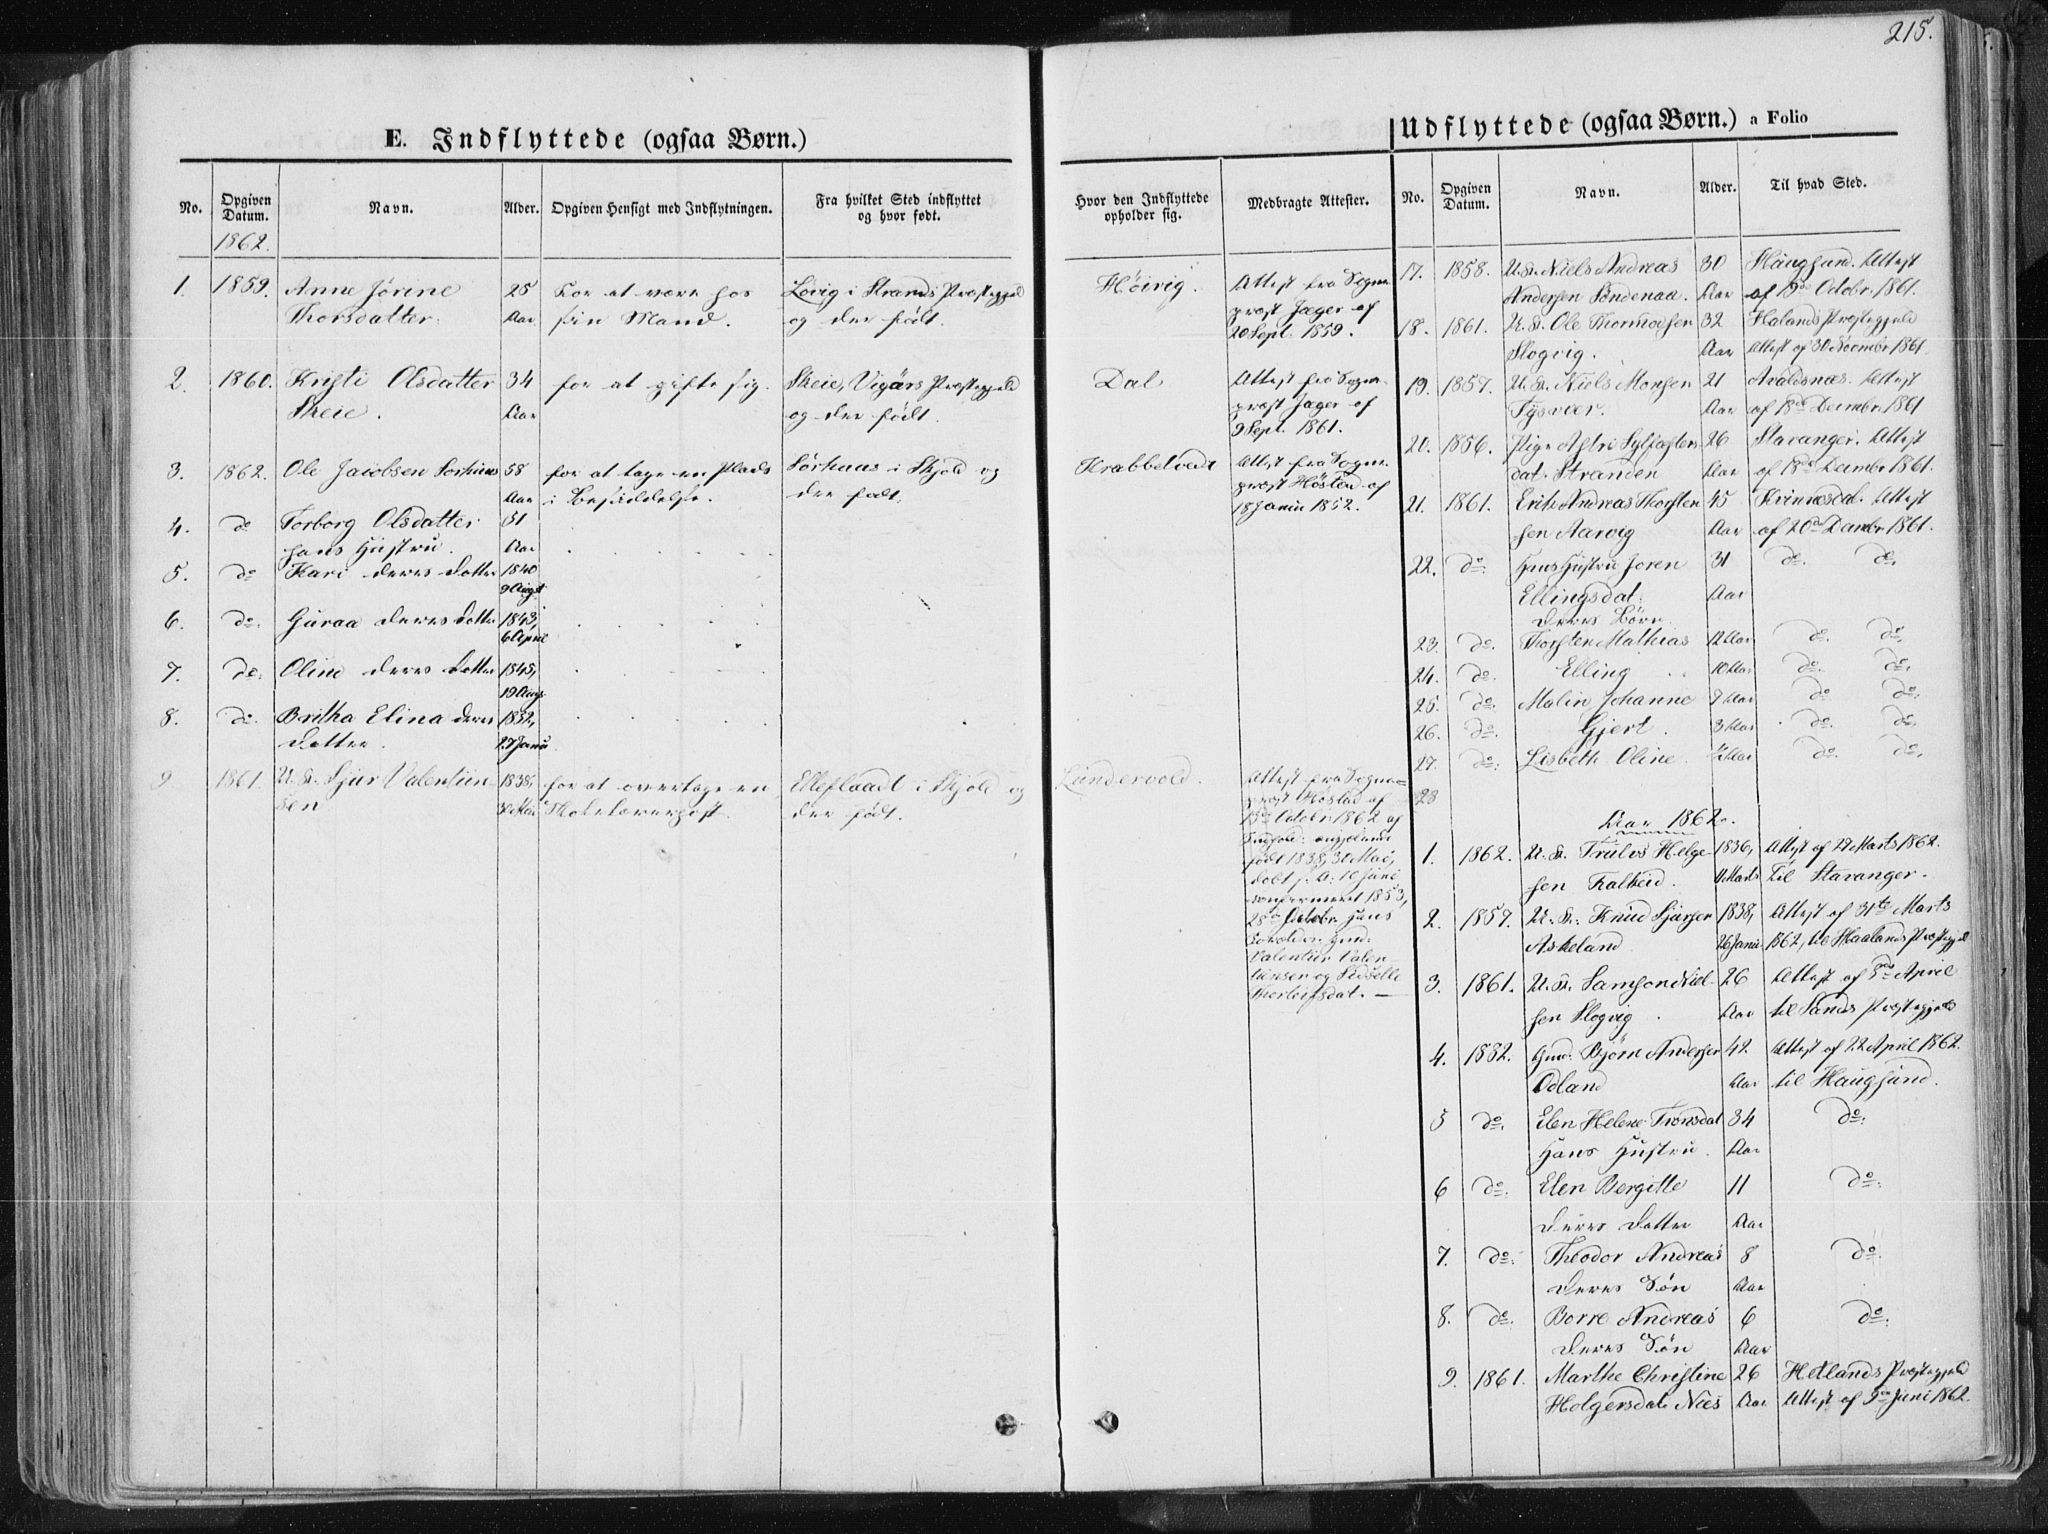 215.
E. Indflyttede (ogsaa Børn.)
No. Opgiven Datum. Navn. Alder. Opgiven Hensigt med Indflytningen. Fra hvilket Sted indflyttet og hvor født. Hvor den Indflyttede opholder sig. Medbragte Attester.
1862.
1. 1859. Anne Jørine 25 For at være hos Lovig i Strands Præstegjeld Høivig. Attest fra Sogne
Thorsdatter. Aar sin Mand. og der født. præst Jæger af
20 Sept. 1859.
2. 1860. Kristi Olsdatter 34 for at gifte sig. Skeie, Vigørs Præstegjeld Dal Attest fra Sogne
Skeie. Aar og der født. præst Jæger af
9 Sept. 1861.
3. 1862. Ole Jacobsen Sørhuus 58 for at tage en Plads Sørhuus i Skjold og Krabbetvedt Attest fra Sogne
Aar i Besiddelse. der født. præst Höstad af
18 Janu 1852.
4. do Torborg Olsdatter 51
hans Hustru. Aar
5. do Kari deres Datter 1840
9 Augst
6. do. Guroa deres Datter 1843,
6 April
7. do. Oline deres Datter 1845,
19 Aug
8. do. Britha Elina deres 1852,
Datter. 27 Janu
9 1861. U. K. Sjur Valentin 1838, for at overtage en Ellefladt i Skjold og Lundervold. Attest fra Sogne=
sen 30 Mai Skolelærerpost. der født. præst Höstad af
15de Octobr 1862 af
født 1838, 30 Mai,
døbt s. A. 10 Juni
confirmeret 1853,
28de Octobr. hans
Forældre: Gmd.
Valentin Valen
tinsen og Sidselle
Thorleifsdat. —
Udflyttede (ogsaa Børn.) a Folio
No. Opgiven Datum. Navn. Alder. Til hvad Sted.
17. 1858. U. K. Niels Andreas 30 Haugsund. Attest
Andersen Søndenaa. Aar af 19de Octobr. 1861.
18. 1861. U. K. Ole Thormodsen 32 Halands Præstegjeld
Slogvig. Aar Attest af 30 Novembr 1861
19. 1857. U. K. Niels Monsen 21 Avaldsnæs. Attest
Tysvær. Aar af 18de Decembr. 1861
20. 1856. Pige Astri Sylfæster 26 Stavanger. Attest
dat. Stranden Aar af 18de Decembr 1861.
21. 1861. Erik Andreas Thorsten 45 Kvinnesdal. Attest
sen Aarvig Aar af 20de Decembr 1861.
22. do. Hans Hustru Joren 31 do. do.
Ellingsdat. Aar
deres Børn
23. do. Thorsten Mathias 12 Aar do. do.
24. do. Elling 10 Aar do. do.
25. do. Malin Johanne 7 Aar do do.
26. do. Gjert. 3 Aar do. do.
27. do. Lisbeth Oline. Aar do. do.
28
Aar 1862.
1. 1862. U. K. Truls Helge 1836, Attest af 22 Marts 1862.
sen Falkeid. Marts Til Stavanger.
2. 1857. U. K. Knud Sjursen 1838, Attest af 31te Marts
Askeland. 26 Janu 1862, til Haalands Præstegjeld
3. 1861. U. K. Samson Niel 26 Attest af April
sen Slogvig. Aar til Sands Præstegjeld
4. 1832. Gmd. Bjørn Andersen 42 Attest af 22 April 1862.
Odland Aar til Haugsund.
5 do. Elen Helene Tronsdat 34 do.
Hans Hustru. Aar
6 do. Elen Bergitte 11 do.
deres Datter Aar
7. do. Theodor Andreas 8 do.
deres Søn Aar
8. do. Borre Andreas 6 do.
deres Søn Aar
9. 1861. Marthe Christine 26 Hetlands Præstegjeld
Holgersdat. Næs Aar Attest af 9de Juni 1862.